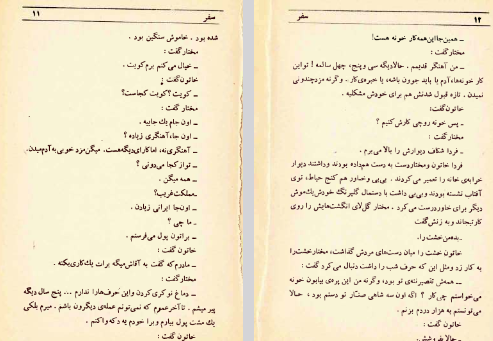 ۱۱ سفر
شده بود . خاموش سنگین بود .
مختار گفت :
ـ خیال می کنم برم کویت .
خاتون گفت :
ـ کویت؟ کویت کجاست؟
مختار گفت :
ـ اون جام یك جاییه .
ـ اون جا، آهنگری زیاده ؟
ـ آهنگری نه، اما کارای دیگه هست. میگن مزد خوبی به آدم میدن.
ـ تو از کجا می دونی ؟
ـ همه میگن .
ـ مملکت غریب؟
ـ اون جا ایرانی زیادن .
ـ ما چی ؟
ـ براتون پول می فرستم .
خاتون گفت :
ـ مادرم که گفت به آقاش میگه برات یك کاری بکنه .
مختار گفت :
ـ دماغ نوکری کردن و این حرف ها را ندارم ... پنج سال دیگه
پیر میشم . تا آخر عموم که نمی تونم عمله ی دیگرون باشم . میرم بلکی
یك مشت پول بیارم و برا خودم یه دکه واکنم .
خاتون گفت :
۱۲ سفر
ـ همین جا این همه کار خونه هست!
مختار گفت :
ـ من آهنگر قدیمم . حالا دیگه سی و پنج، چهل سالمه ! تو این
کار خونه ها، آدم یا باید جوون باشه، یا خبره ی کار . وگرنه مزد چندونی
نمیدن . تازه قبول شدنش هم برای خودش مشکلیه .
خاتون گفت:
ـ پس خونه روچی کارش کنیم ؟
مختار گفت :
ـ فردا شکاف دیوارش را بالا می برم .
فردا خاتون و مختار دست به دست هم داده بودند و داشتند دیوار
خرابه ی خانه را تعمیر می کردند . بی بی و خاور هم کنج حیاط، توی
آفتاب نشسته بودند و بی بی داشت با دستمال گلیرنگ خودش یك موش
دیگر برای خاور درست می کرد . مختار گل لای انگشت هایش را روی
کارتیجاند و به زنش گفت
ـ بده من خشت را.
خاتون خشت را میان دست های مردش گذاشت، مختار خشت را
به کار زد و مثل این که حرف شب را داشت دنبال می کرد گفت :
ـ همه ش تقصیر ننه ی تو بود، وگرنه من این پره ی بیابون خونه
می خواستم چی کار ؟ اگه اون سه شاهی صنار تو دستم بود ، حالا
می تونستم به هزار دردم بزنم .
خاتون گفت :
ـ حالا بفروشش .